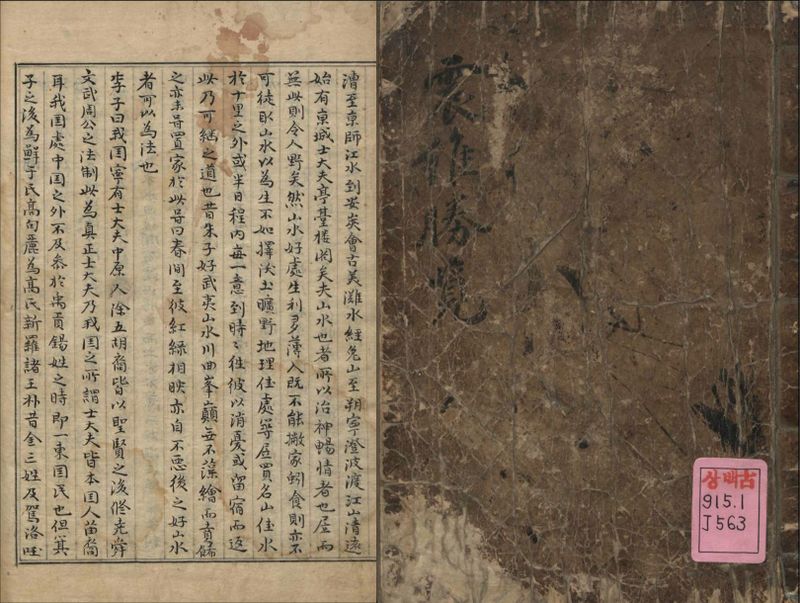 漕至京師江水到安矣會古美灘水經兔山至朔寧澄波渡江山清遠
始有東城士大夫亭臺樓閣矣夫山水也者所以治神暢情者也居而
無此則令人野矣然山水好處生利多薄人既不能撇家蚓食則亦不
可徒取山水以為生不如擇沃土曠野地理佳處築居買名山佳水
於十里之外或半日程內每一意到時〻往彼以消憂或留宿而返
此乃可継之道也昔朱子好武夷山水川曲峯巔無不藻繪而賁餙
之亦未甞置家於此甞曰春間至彼紅綠相映亦自不惡後之好山水
者可以為法也
李子曰我囯寧有士大夫中原人除五胡裔皆以聖賢之後修堯舜
文武周公之法制此為真正士大夫乃我囯之所謂士大夫皆本囯人苗裔
耳我囯處中囯之外不及叅於禹貢錫姓之時即一東囯民也但箕
子之後為鮮于氏高句麗為高氏新羅諸王朴昔金三姓及駕洛囯
震維勝覽
상백古
915.1
J563